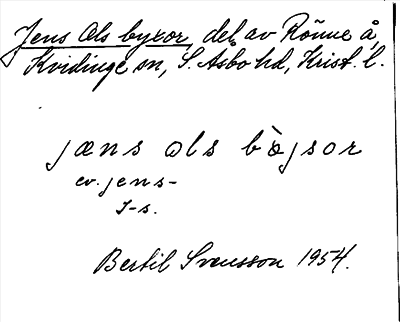 Jens Ols byxor, del av Rönne å,
Kvidinge sn, S. Åsbo hd, Krist. l.
jæns ols bæ̀jsor
ev. jens-
I-s.
Bertil Svensson 1954.